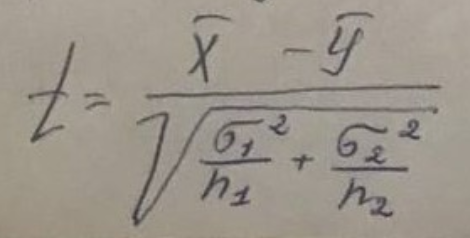 t = \frac{\bar{x} - \bar{y}}{\sqrt{\frac{\sigma_1^2}{n_1} + \frac{\sigma_2^2}{n_2}}}